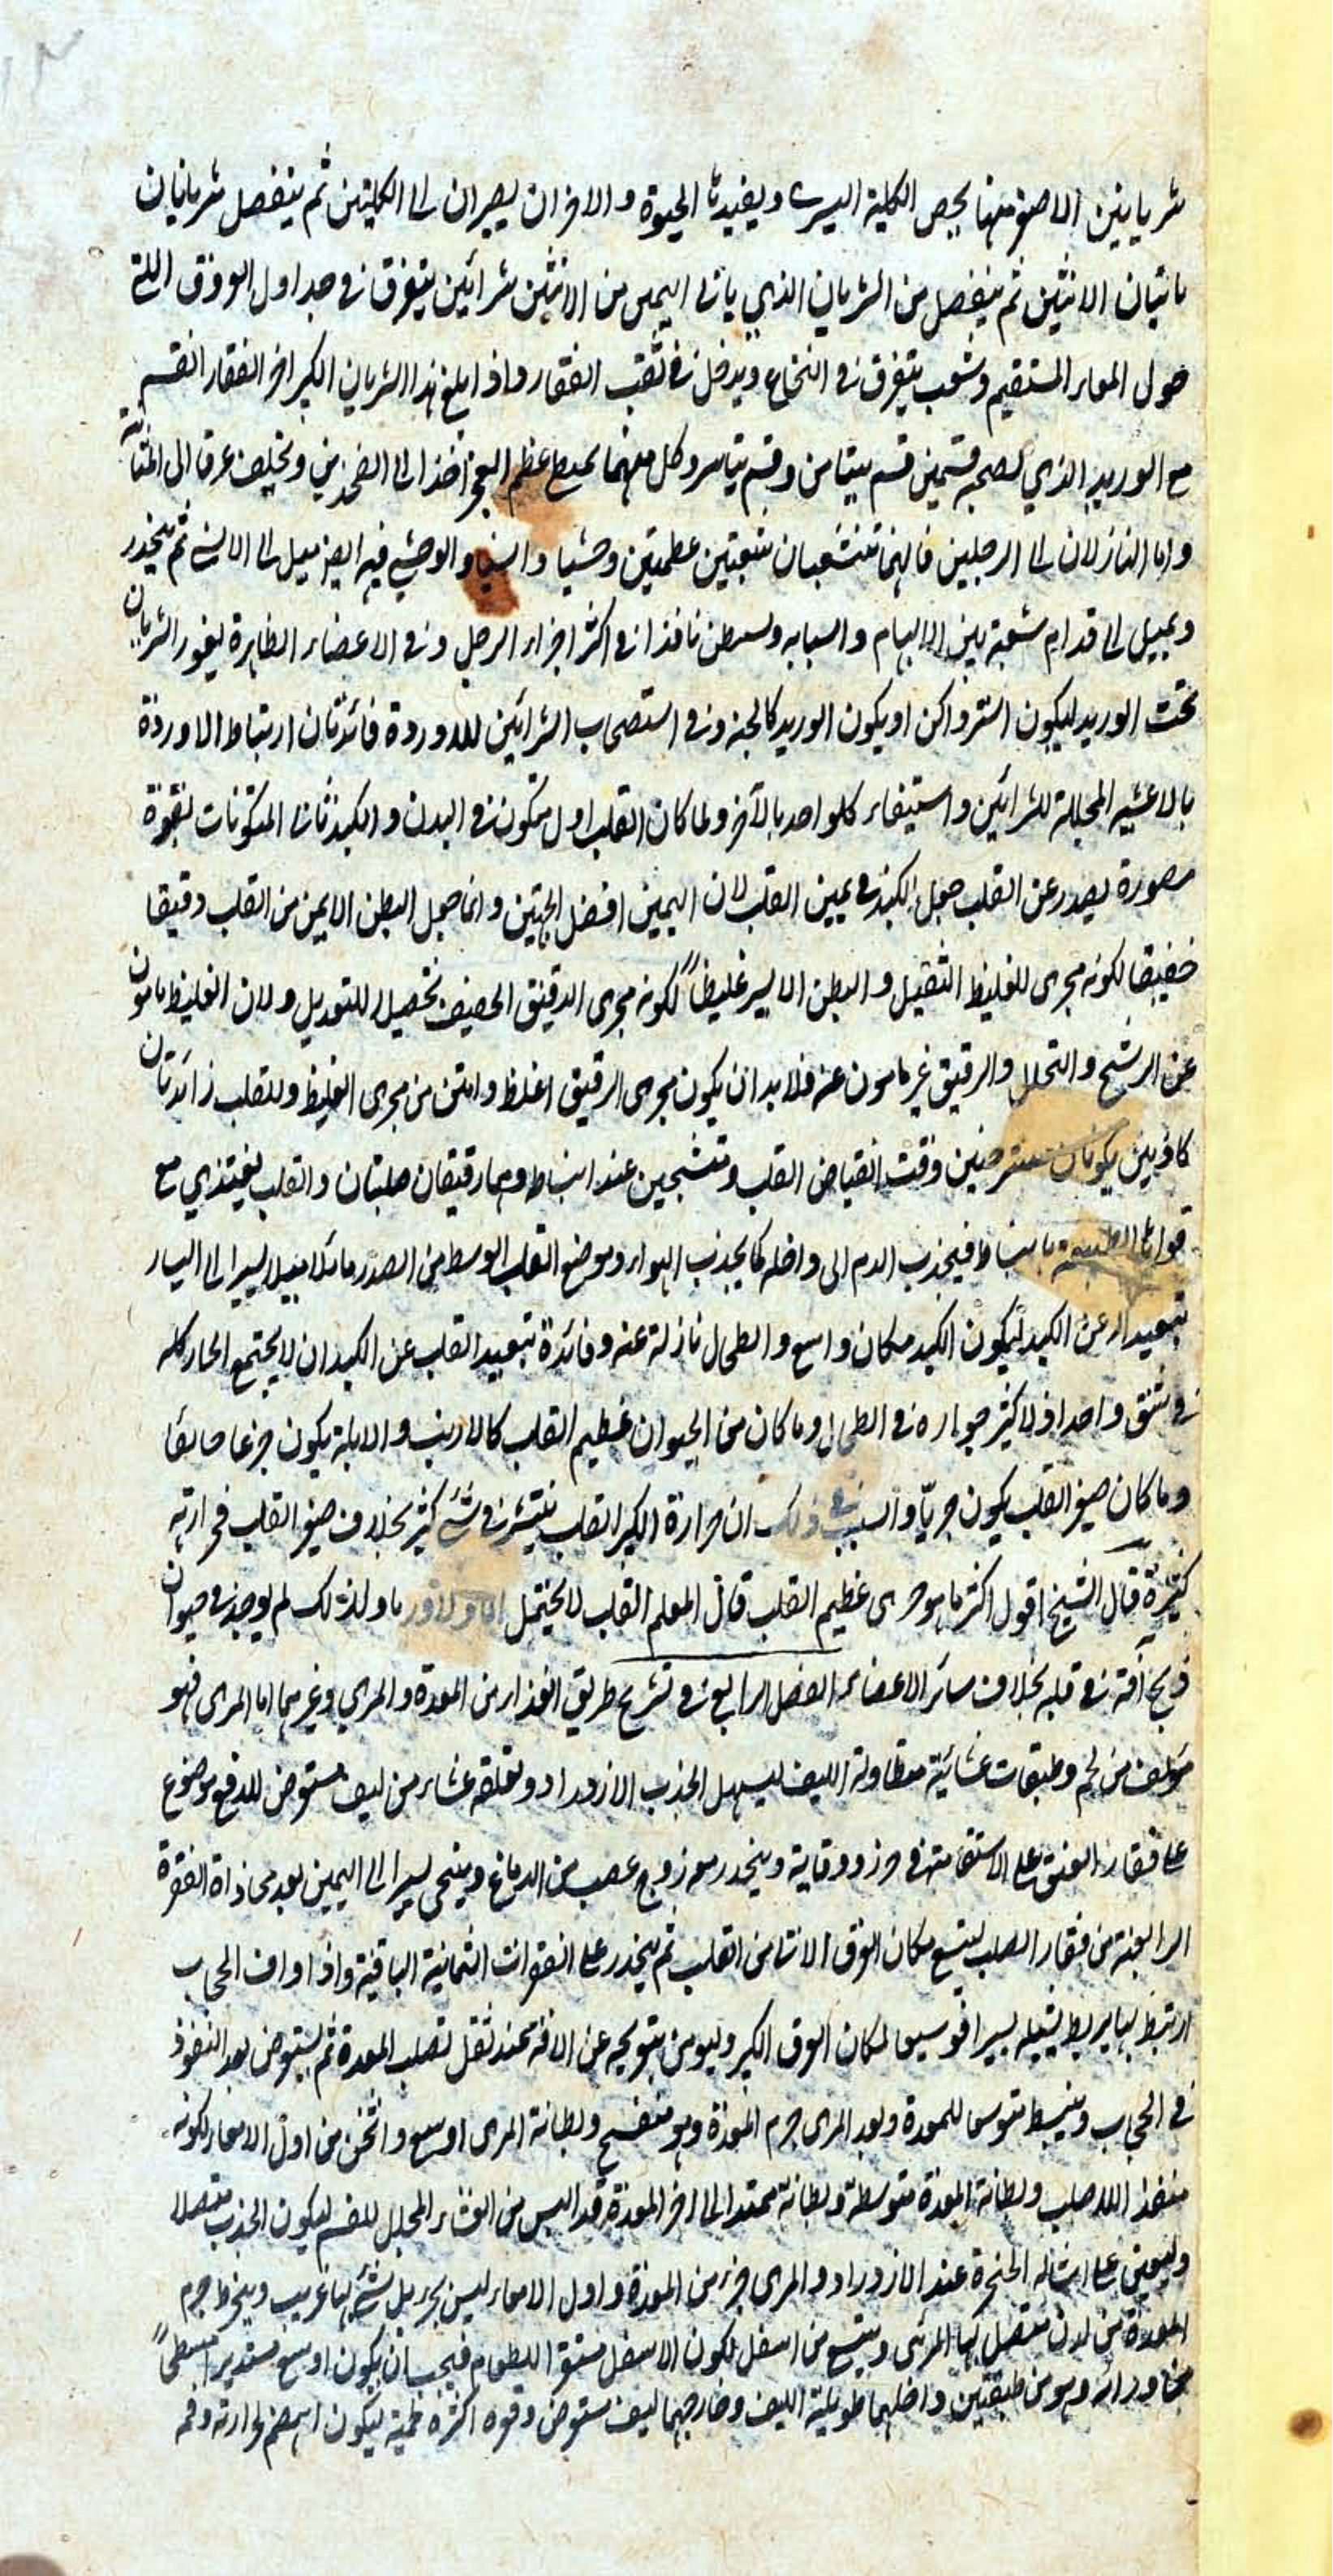 شريانين الاصغر منها يخص الكلية اليسرى ويفيدها الحيوة والاخران يصيران الى الكليتين ثم ينفصل شريانان
ياتيان الانثيين ثم ينفصل من الشريان الذي ياتى اليمين من الانثيين شرائين يتفرق فى جداول العروق التى
حول المعاء المستقيم وشعب يتفرق فى النخاع ويدخل فى ثقب الفقار واذا بلغ هذا الشريان الكبير اخر الفقار انقسم
مع الوريد الذي يصحبه قسمين قسم يتيامن وقسم يتياسر وكل منهما يمتطى عظم العجز اخذا الى الفخذين ويخلف عرقا الى المثانة
واما النازلان الى الرجلين فانهما تتشعبان شعبتين عظمتين وحشيا وانسيا والوحشي فيه ايض ميل الى الانسي ثم ينحدر
ويميل الى قدام شعبة بين الابهام والسبابه ويستبطن نافذا فى اكثر اجزاء الرجل وفى الاعضاء الظاهرة يغور الشريان
تحت الوريد ليكون استر واكن او يكون الوريد كالجنه وفى استصحاب الشرائين للاوردة فائدتان ارتباط الاوردة
بالاغشيه المجللة للشرائين واستيفاء كلواحد بالآخر ولما كان القلب اول متكون فى البدن والكبد ثانى المتكونات بقوة
مصورة يصدر عن القلب جعل الكبد فى يمين القلب لان اليمين افضل الجهتين وانما جعل البطن الايمن من القلب رقيقا
خفيفا لكونه مجرى للغليظ الثقيل والبطن الايسر غليظاً لكونه مجرى الرقيق الخفيف تحصيلا للتعديل ولان الغليظ مامون
عن الرشح والتحلل والرقيق غير مامون عنه فلا بد ان يكون مجرى الرقيق اغلظ وامتن من مجرى الغليظ وللقلب زائدتان
كاذنين يكونان مسترخيين وقت انقباض القلب ومتشنجين عند انبساطه وهما رقيقتان صلبتان والقلب يغتذي مع
قواها الطبيعية بانبساط فيجذب الدم الى داخله كما يجذب الهواء وموضع القلب الوسط من الصدر مائلا ميلا يسيرا الى اليسار
تبعيدا له عن الكبد ليكون الكبد مكان واسع والطحال نازلة عنه وفائدة تبعيد القلب عن الكبد ان لا يجتمع الحار كله
فى شق واحد اذ لا كثير حراره فى الطحال وما كان من الحيوان عظيم القلب كالارنب والابلة يكون جزعا خائفا
وما كان صغير القلب يكون جريّا والسبب فى ذلك ان حرارة الكبير القلب ينتشر فى شئ كثير بخلاف صغير القلب فحرارته
كثيرة قال الشيخ اقول اكثر ما هو جرى عظيم القلب قال المعلم القلب لا يحتمل الما ولا ورما ولذلك لم يوجد فى حيوان
ذبح آفة فى قلبه بخلاف سائر الاعضاء الفصل الرابع فى تشريح طريق الغذاء من المعدة والمري وغيرهما اما المرى فهو
مؤلف من لحم وطبقات غشائية متطاولة الليف ليسهل الجذب الازدراد وتعلقه غشاء من ليف مستعرض للدفع موضوع
على فقار العنق على الاستقامة فى حرز ووقاية وينحدر معه زوج عصب من الدماغ ويتنحى يسيرا الى اليمين بعد محاذاة الفقرة
الرابعة من فقار الصلب ليتسع مكان العرق الاتى من القلب ثم ينحدر على الفقرات الثمانية الباقية واذا وافى الحجاب
ارتبط بها بربط يشيله يسيرا توسيعا لمكان العرق الكبير وليومن بتعريجه عن الافة عند ثقل يصلب المعدة ثم يستعرض بعد النفوذ
فى الحجاب وينبسط متوسعا للمعدة وبعد المرى جرم المعدة وهو منفسح وبطانة المرى اوسع واثخن من اول الامعاء لكونه
منفذ اللصلب وبطانة المعدة متوسطة وبطانة ممتدا الى اخر المعدة قد البس من الغشاء المجلل للفم ليكون الجذب متصلا
وليعين على اشالة الحنجرة عند الازدراد والمرى جزء من المعدة واول الامعاء ليس بجزء بل شئ بها غريب وينخرط جرم
المعدة من لدن متصل بها المرئ ويتسع من اسفل لكون الاسفل مستقر للطعام فيجب ان يكون اوسع مستديرا مسطحاً
من ورائه وهو من طبقتين داخلهما طويلة الليف وخارجهما ليف مستعرض وقوه اكثره لحمية ليكون اهضم لحرارته وفمه